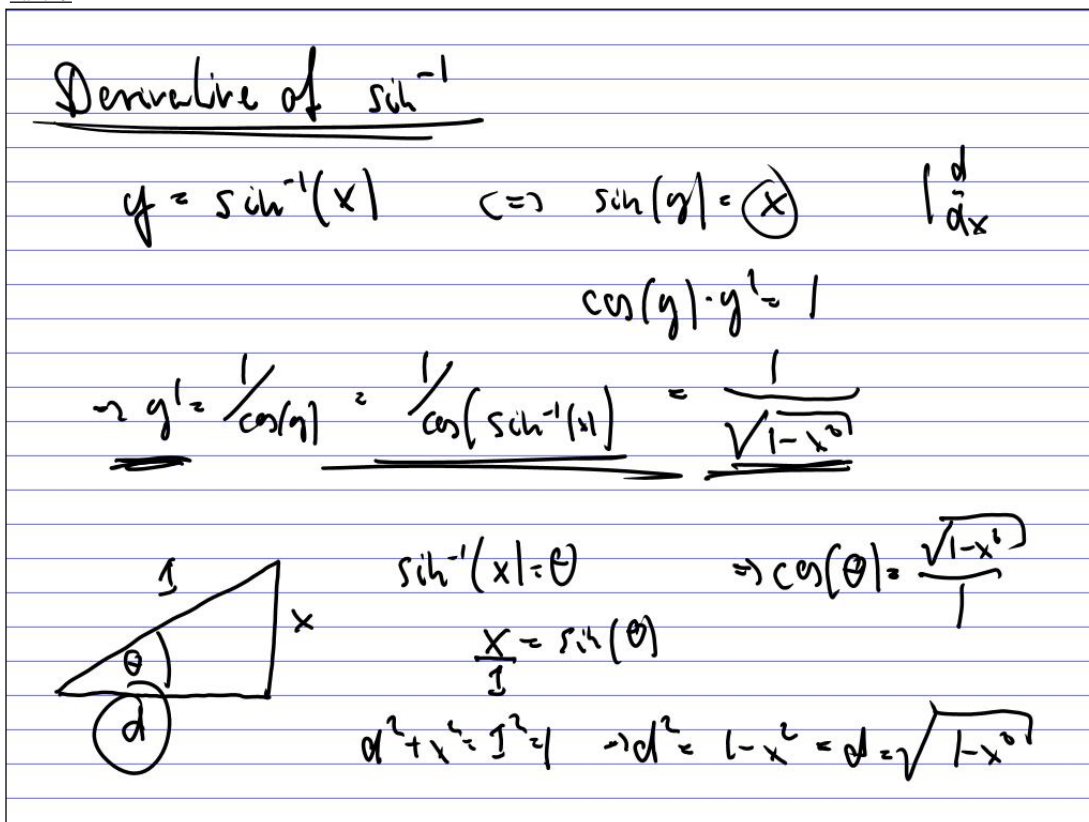 Derivative of sin⁻¹
y = sin⁻¹(x) <=> sin(y) = x | d/dx
cos(y) · y' = 1
=> y' = 1/cos(y) = 1/cos(sin⁻¹(x)) = 1/√(1-x²)
1 x θ d
sin⁻¹(x) = θ => cos(θ) = √(1-x²)/1
x/1 = sin(θ)
d² + x² = 1² = 1 => d² = 1-x² = d = √(1-x²)